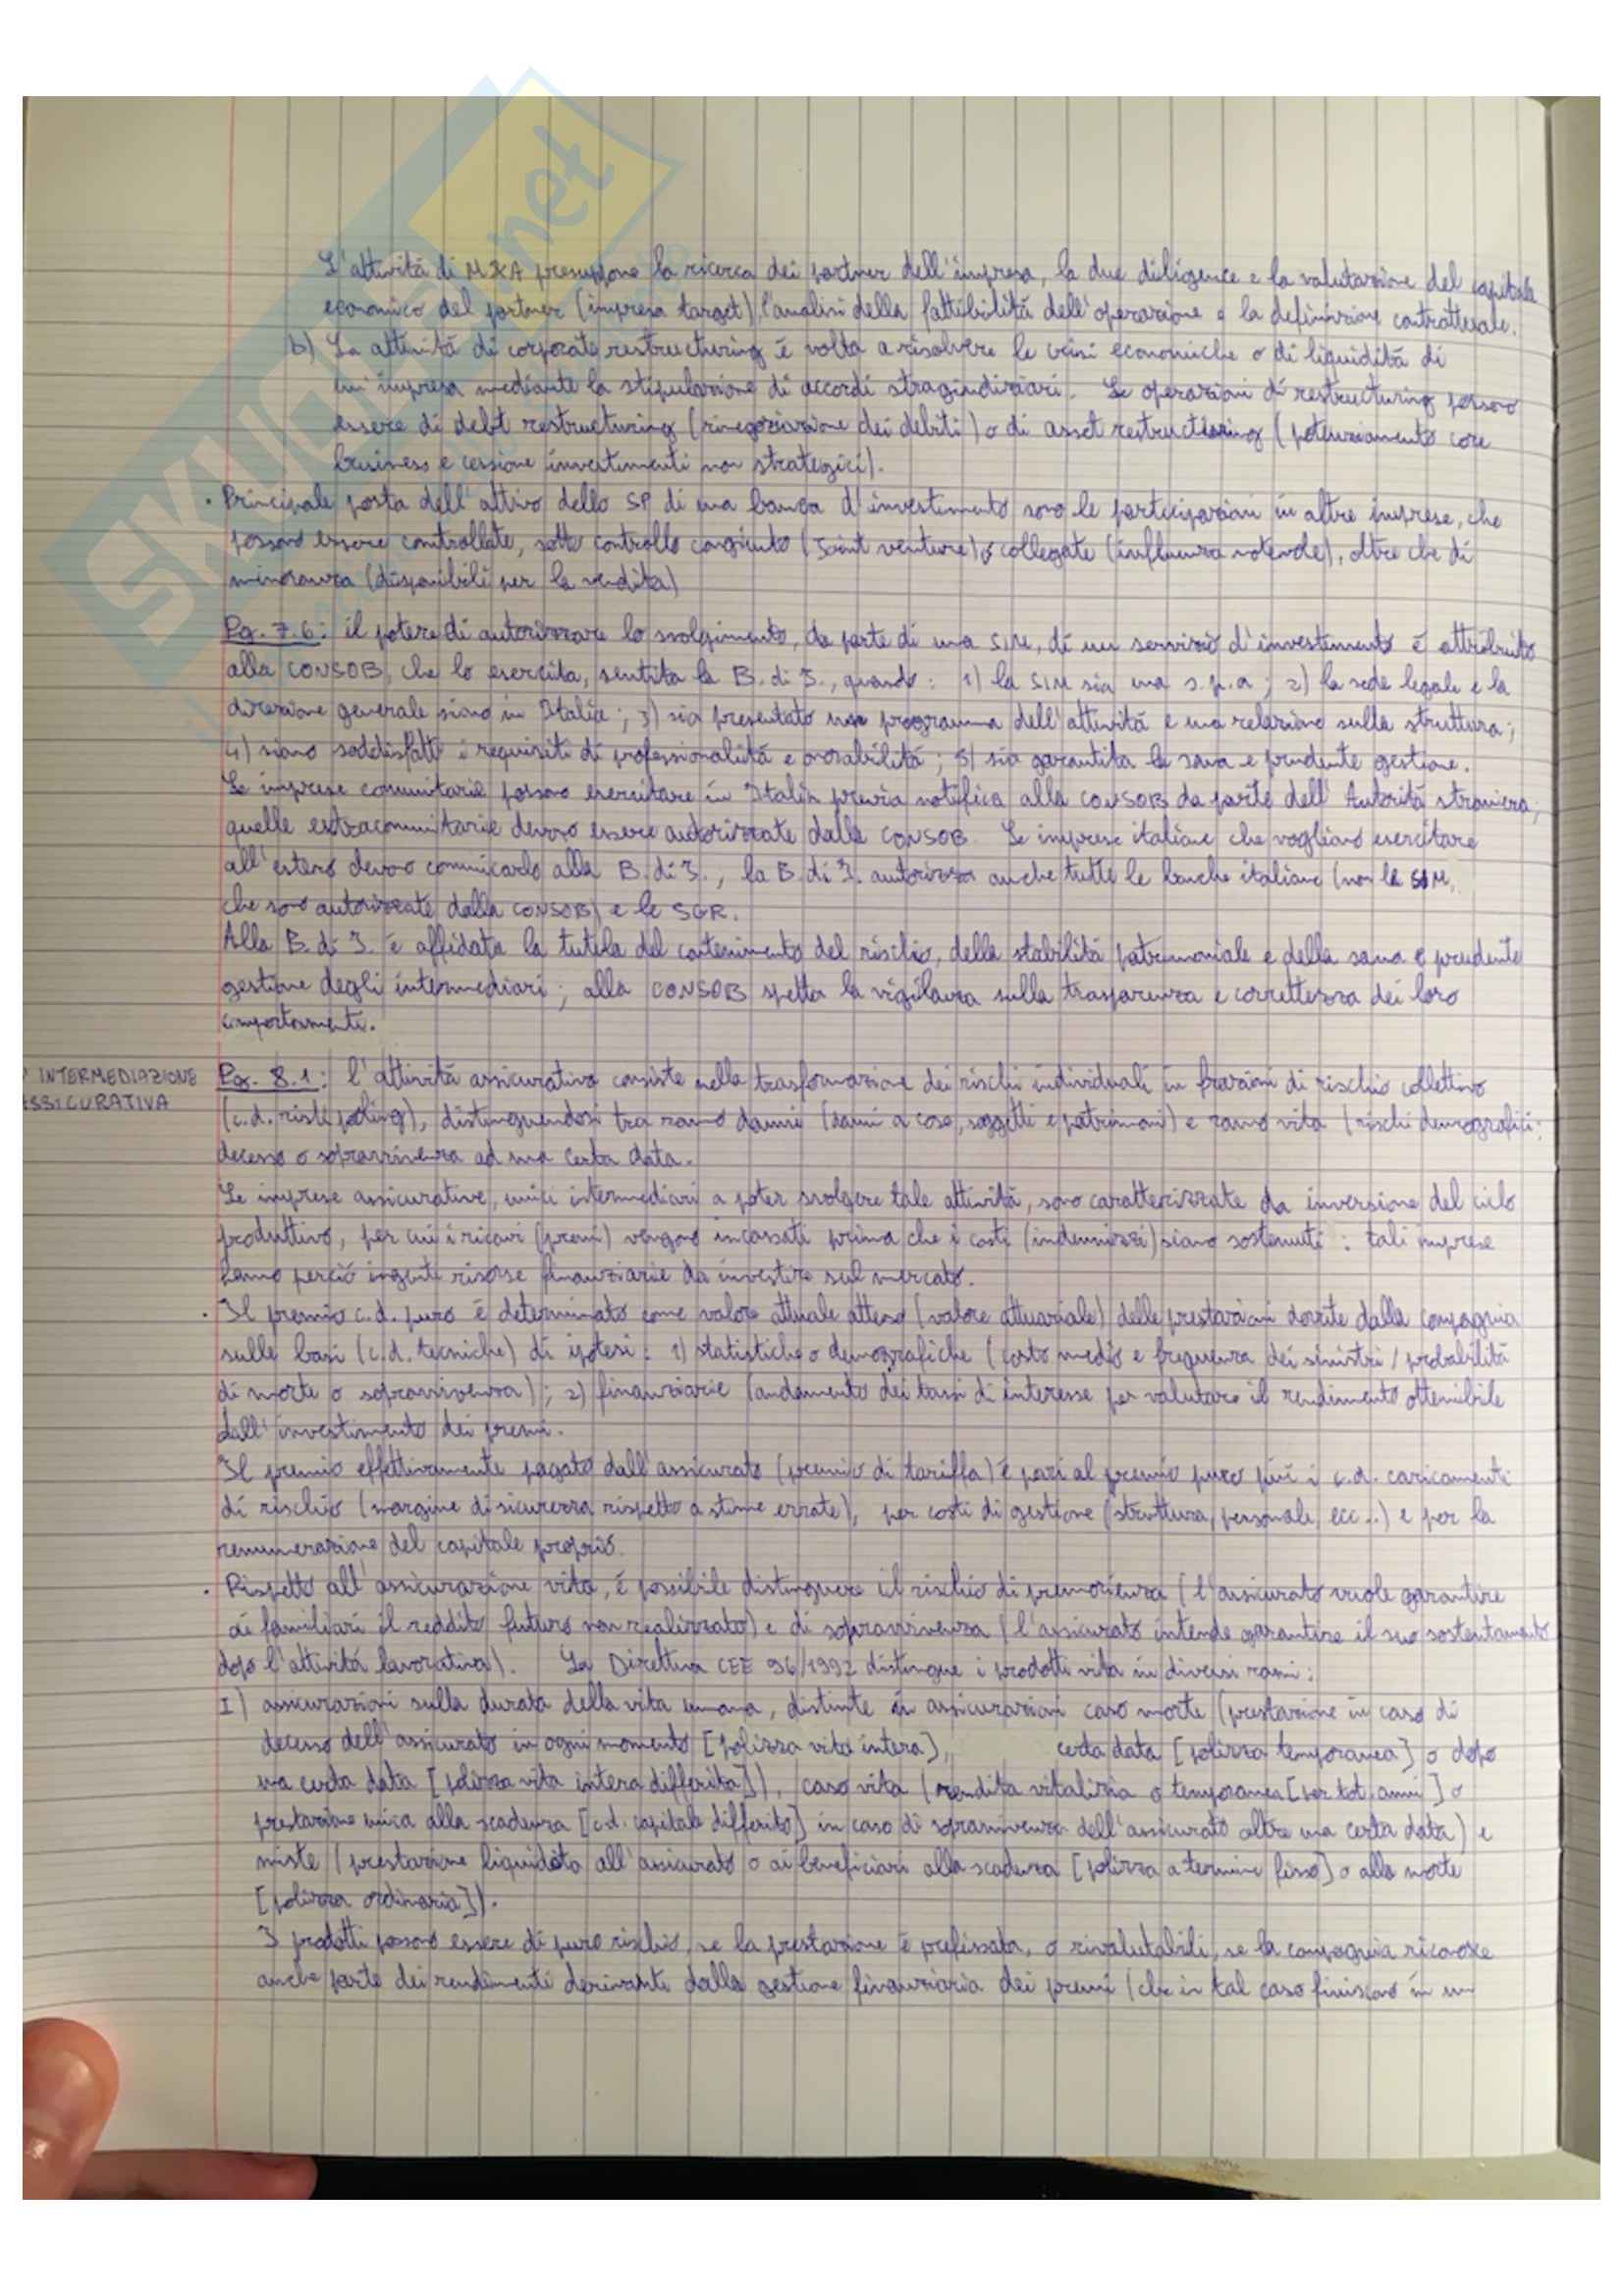 SKUOLA.net
L'attività di M&A presuppone la ricerca dei partner dell'impresa, la due diligence e la valutazione del capitale
economico del partner (impresa target), l'analisi della fattibilità dell'operazione e la definizione contrattuale.
b) La attività di corporate restructuring è volta a risolvere le crisi economiche o di liquidità di
un'impresa mediante la stipulazione di accordi stragiudiziari. Le operazioni di restructuring possono
essere di debt restructuring (rinegoziazione dei debiti) o di asset restructuring (potenziamento core
business e cessione investimenti non strategici).
· Principale posta dell'attivo dello SP di una banca d'investimento sono le partecipazioni in altre imprese, che
possono essere controllate, sotto controllo congiunto (joint venture) o collegate (influenza notevole), oltre che di
minoranza (disponibili per la vendita)
Pg. 7.6: il potere di autorizzare lo svolgimento, da parte di una SIM, di un servizio d'investimento è attribuito
alla CONSOB, che lo esercita, sentita la B. di I., quando: 1) la SIM sia una s.p.a; 2) la sede legale e la
direzione generale siano in Italia; 3) sia presentato un programma dell'attività e una relazione sulla struttura;
4) siano soddisfatti i requisiti di professionalità e onorabilità; 5) sia garantita la sana e prudente gestione.
Le imprese comunitarie possono esercitare in Italia previa notifica alla CONSOB da parte dell'Autorità straniera;
quelle extracomunitarie devono essere autorizzate dalla CONSOB. Le imprese italiane che vogliano esercitare
all'estero devono comunicarlo alla B. di I., la B. di I. autorizza anche tutte le banche italiane (non le SIM,
che sono autorizzate dalla CONSOB) e le SGR.
Alla B. di I. è affidata la tutela del contenimento del rischio, della stabilità patrimoniale e della sana e prudente
gestione degli intermediari; alla CONSOB spetta la vigilanza sulla trasparenza e correttezza dei loro
comportamenti.
INTERMEDIAZIONE
ASSICURATIVA
Pg. 8.1: l'attività assicurativa consiste nella trasformazione dei rischi individuali in frazioni di rischio collettivo
(c.d. risk pooling), distinguendosi tra ramo danni (danni a cose, soggetti e patrimoni) e ramo vita (rischi demografici:
decesso o sopravvivenza ad una certa data.
Le imprese assicurative, unici intermediari a poter svolgere tale attività, sono caratterizzate da inversione del ciclo
produttivo, per cui i ricavi (premi) vengono incassati prima che i costi (indennizzi) siano sostenuti: tali imprese
hanno perciò ingenti risorse finanziarie da investire sul mercato.
· Il premio c.d. puro è determinato come valore attuale atteso (valore attuariale) delle prestazioni dovute dalla compagnia
sulle basi (c.d. tecniche) di ipotesi: 1) statistiche o demografiche (costo medio e frequenza dei sinistri / probabilità
di morte o sopravvivenza); 2) finanziarie (andamento dei tassi di interesse per valutare il rendimento ottenibile
dall'investimento dei premi.
Il premio effettivamente pagato dall'assicurato (premio di tariffa) è pari al premio puro più i c.d. caricamenti
di rischio (margine di sicurezza rispetto a stime errate), per costi di gestione (struttura, personale, ecc..) e per la
remunerazione del capitale proprio.
· Rispetto all'assicurazione vita, è possibile distinguere il rischio di premorienza (l'assicurato vuole garantire
ai familiari il reddito futuro non realizzato) e di sopravvivenza (l'assicurato intende garantire il suo sostentamento
dopo l'attività lavorativa). La Direttiva CEE 96/1992 distingue i prodotti vita in diversi rami:
I) assicurazioni sulla durata della vita umana, distinte in assicurazioni caso morte (prestazione in caso di
decesso dell'assicurato in ogni momento [polizza vita intera], certa data [polizza temporanea] o dopo
una certa data [polizza vita intera differita]), caso vita (rendita vitalizia o temporanea [per tot. anni] o
prestazione unica alla scadenza [c.d. capitale differito] in caso di sopravvivenza dell'assicurato oltre una certa data) e
miste (prestazione liquidata all'assicurato o ai beneficiari alla scadenza [polizza a termine fisso] o alla morte
[polizza ordinaria]).
I prodotti possono essere di puro rischio, se la prestazione è prefissata, o rivalutabili, se la compagnia riconosce
anche parte dei rendimenti derivanti dalla gestione finanziaria dei premi (che in tal caso finiscono in un